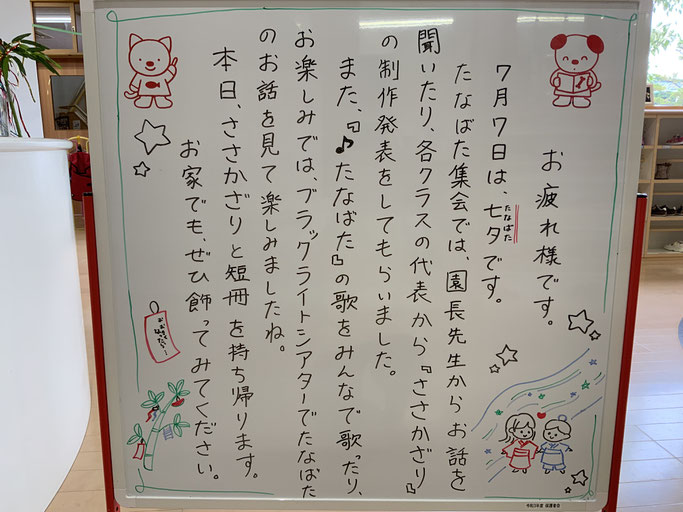 お疲れ様です。
7月7日は、七夕です。
たなばた
たなばた集会では、園長先生からお話を
聞いたり、各クラスの代表から『ささかざり』
の制作発表をしてもらいました。
また、『♪たなばた』の歌をみんなで歌ったり、
お楽しみでは、ブラックライトシアターでたなばた
のお話を見て楽しみましたね。
本日、ささかざりと短冊を持ち帰ります。
お家でも、ぜひ飾ってみてください。